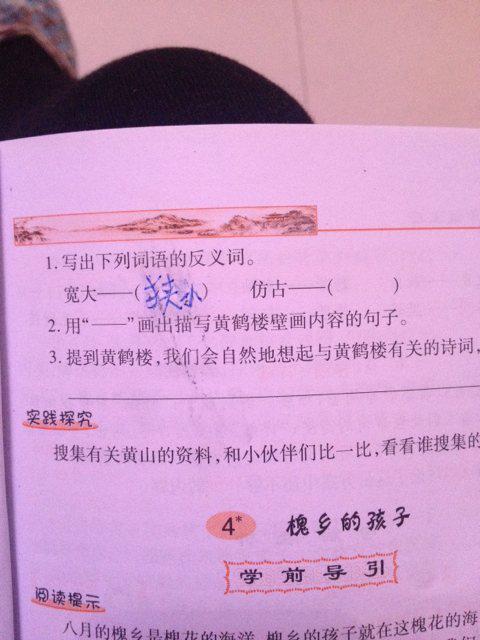 1. 写出下列词语的反义词。
宽大——(狭小)　仿古——(　　)
2. 用“——”画出描写黄鹤楼壁画内容的句子。
3. 提到黄鹤楼,我们会自然地想起与黄鹤楼有关的诗词,
实践探究
搜集有关黄山的资料,和小伙伴们比一比,看看谁搜集的
4* 槐乡的孩子
学前导引
阅读提示
八月的槐乡是槐花的海洋,槐乡的孩子就在这槐花的海